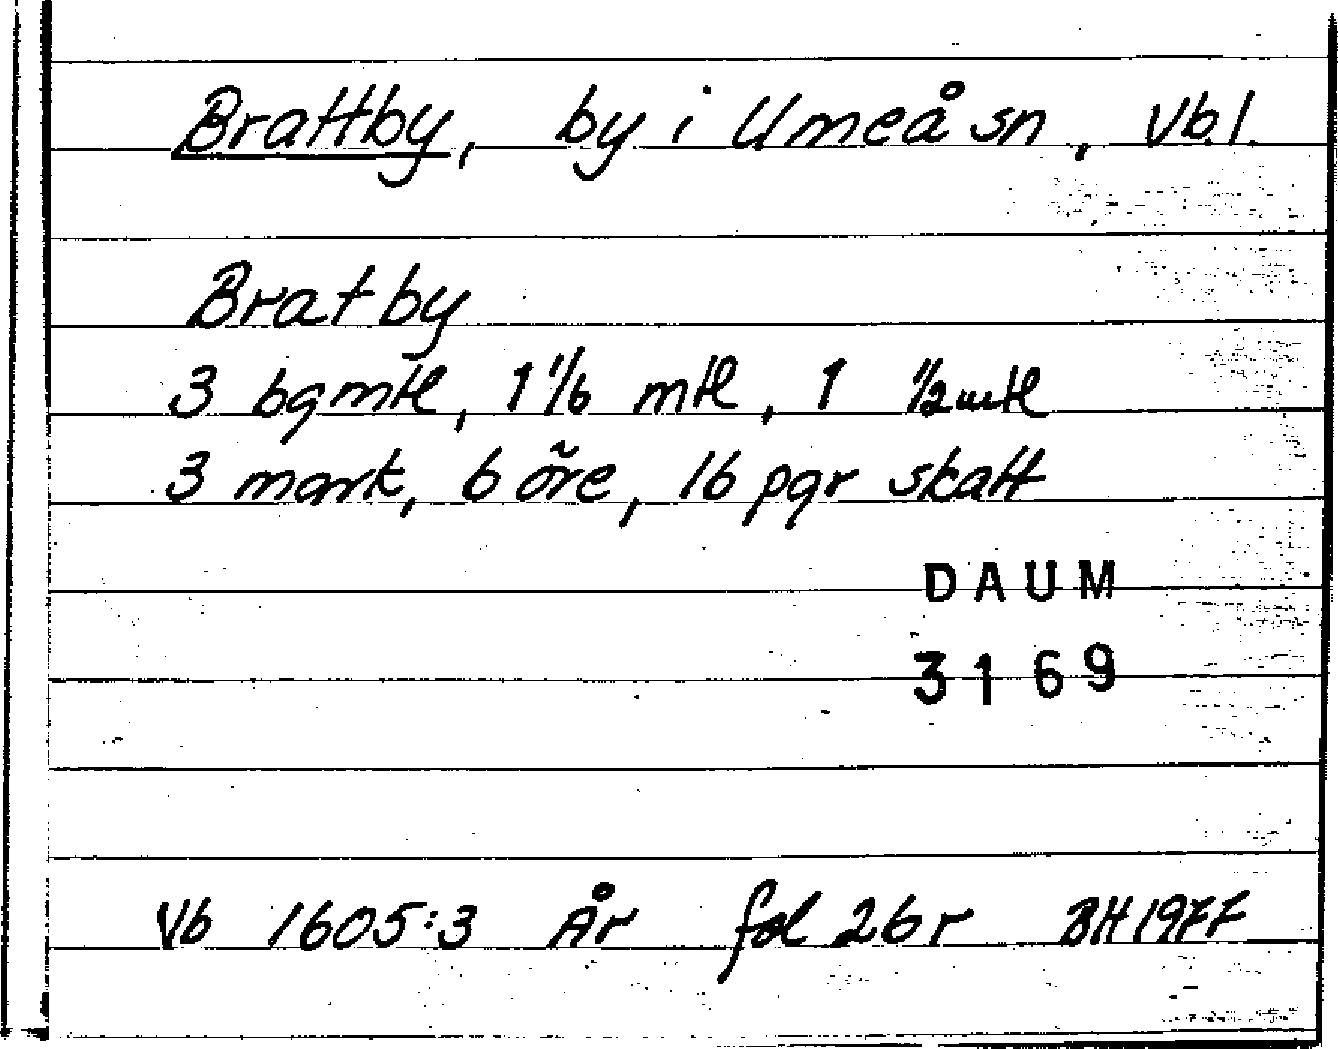 Brattby, by i Umeå sn, Vb.l.
Bratby
3 bgmtl, 1 1/6 mtl, 1 1/2 mtl
3 mark, 6 öre, 16 pgr skatt
DAUM
3169
Vb 1605:3 År fol 26 r BH 1977